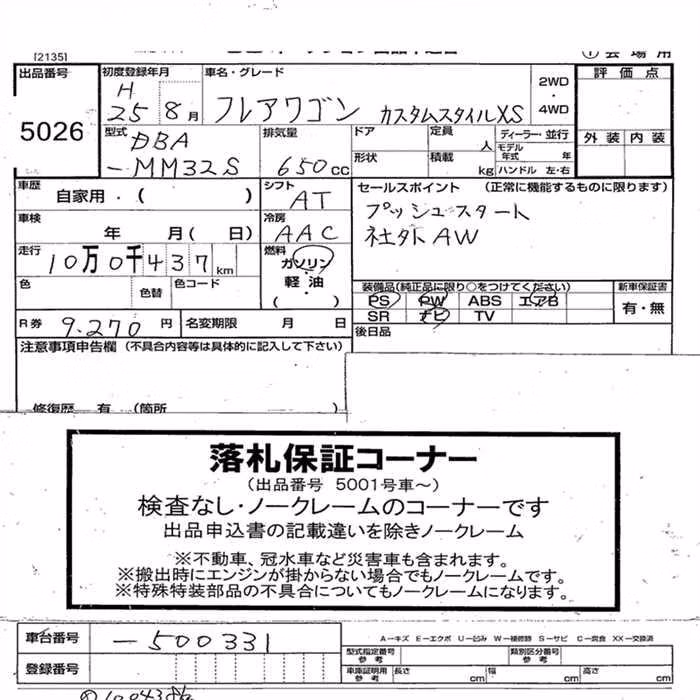 [2135]
① 会場用
出品番号 5026
初度登録年月 H 25 8 月
車名・グレード フレアワゴン カスタムスタイルXS
2WD ・ 4WD
評価点
外装 内装
型式 DBA -MM32S
排気量 650 cc
ドア
定員 人
ディーラー・並行
モデル年式 年
形状
積載 kg
ハンドル 左・右
車歴 自家用・( )
シフト AT
セールスポイント (正常に機能するものに限ります)
プッシュスタート
社外AW
車検 年 月( 日)
冷房 AAC
走行 10万0千437 km
燃料 ガソリン・軽油・( )
色 色替 色コード
装備品(純正品に限り○をつけてください)
PS PW ABS エアB
SR ナビ TV
新車保証書 有・無
R券 9.270 円
名変期限 月 日
後日品
注意事項申告欄 (不具合内容等は具体的に記入して下さい)
修復歴 有 (箇所 )
落札保証コーナー
(出品番号 5001号車~)
検査なし・ノークレームのコーナーです
出品申込書の記載違いを除きノークレーム
※不動車、冠水車など災害車も含まれます。
※搬出時にエンジンが掛からない場合でもノークレームです。
※特殊特装部品の不具合についてもノークレームになります。
車台番号 -500331
A-キズ E-エクボ U-凹み W-補修跡 S-サビ C-腐食 XX-交換済
登録番号
型式指定番号 参考
類別区分番号 参考
車庫証明用 参考 長さ cm 幅 cm 高さ cm